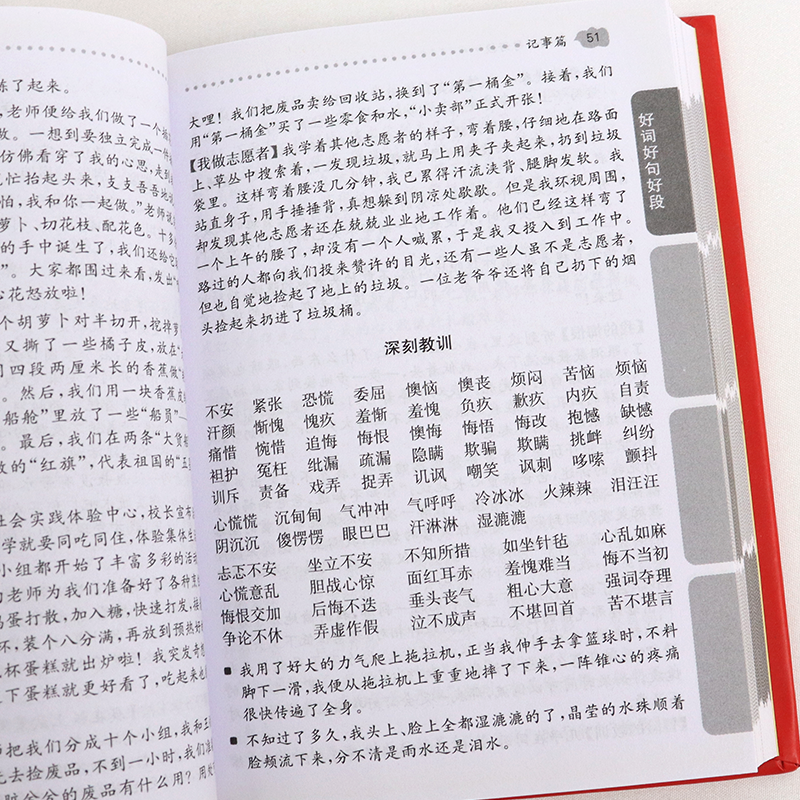 练了起来。
老师便给我们做了一个
做。一想到要独立完成一件
仿佛看穿了我的心思,走到
忙抬起头来,支支吾吾地
怕,我和你一起做。”老师说
萝卜、切花枝、配花色。十多
的手中诞生了,我们还给它
”。大家都围过来看,发出“
心花怒放啦!
个胡萝卜对半切开,挖掉
又撕了一些橘子皮,放在“
用四段两厘米长的香蕉做“
。然后,我们用一块香蕉皮
船舱”里放了一些“船员”—
。最后,我们在两条“大货船
做的“红旗”,代表祖国的“五
社会实践体验中心,校长宣布
学就要同吃同住,体验集体生
小组都开始了丰富多彩的活动
老师为我们准备好了各种
鸡蛋打散,加入糖,快速打发,
杯,装个八分满,再放到预热好
杯蛋糕就出炉啦!我突发奇想
下蛋糕就更好看了,吃起来也
师把我们分成十个小组,我和
先去捡废品,不到一小时,我们
脏兮兮的废品有什么用?用
记事篇 51
大哩!我们把废品卖给回收站,换到了“第一桶金”。接着,我们
用“第一桶金”买了一些零食和水,“小卖部”正式开张!
【我做志愿者】我学着其他志愿者的样子,弯着腰,仔细地在路面
上、草丛中搜索着,一发现垃圾,就马上用夹子夹起来,扔到垃圾
袋里。这样弯着腰没几分钟,我已累得汗流浃背、腿脚发软。我
站直身子,用手捶捶背,真想躲到阴凉处歇歇。但是我环视周围,
却发现其他志愿者还在兢兢业业地工作着。他们已经这样弯了
一个上午的腰了,却没有一个人喊累,于是我又投入到工作中。
路过的人都向我们投来赞许的目光,还有一些人虽不是志愿者,
但也自觉地捡起了地上的垃圾。一位老爷爷还将自己扔下的烟
头捡起来扔进了垃圾桶。
深刻教训
不安 紧张 恐慌 委屈 懊恼 懊丧 烦闷 苦恼 烦恼
汗颜 惭愧 愧疚 羞惭 羞愧 负疚 歉疚 内疚 自责
痛惜 惋惜 追悔 悔恨 懊悔 悔悟 悔改 抱憾 缺憾
袒护 冤枉 纰漏 疏漏 隐瞒 欺骗 欺瞒 挑衅 纠纷
训斥 责备 戏弄 捉弄 讥讽 嘲笑 讽刺 哆嗦 颤抖
心慌慌 沉甸甸 气冲冲 气呼呼 冷冰冰 火辣辣 泪汪汪
阴沉沉 傻愣愣 眼巴巴 汗淋淋 湿漉漉
忐忑不安 坐立不安 不知所措 如坐针毡 心乱如麻
心慌意乱 胆战心惊 面红耳赤 羞愧难当 悔不当初
悔恨交加 后悔不迭 垂头丧气 粗心大意 强词夺理
争论不休 弄虚作假 泣不成声 不堪回首 苦不堪言
■ 我用了好大的力气爬上拖拉机,正当我伸手去拿篮球时,不料
脚下一滑,我便从拖拉机上重重地摔了下来,一阵锥心的疼痛
很快传遍了全身。
■ 不知过了多久,我头上、脸上全都湿漉漉的了,晶莹的水珠顺着
脸颊流下来,分不清是雨水还是泪水。
好词好句好段